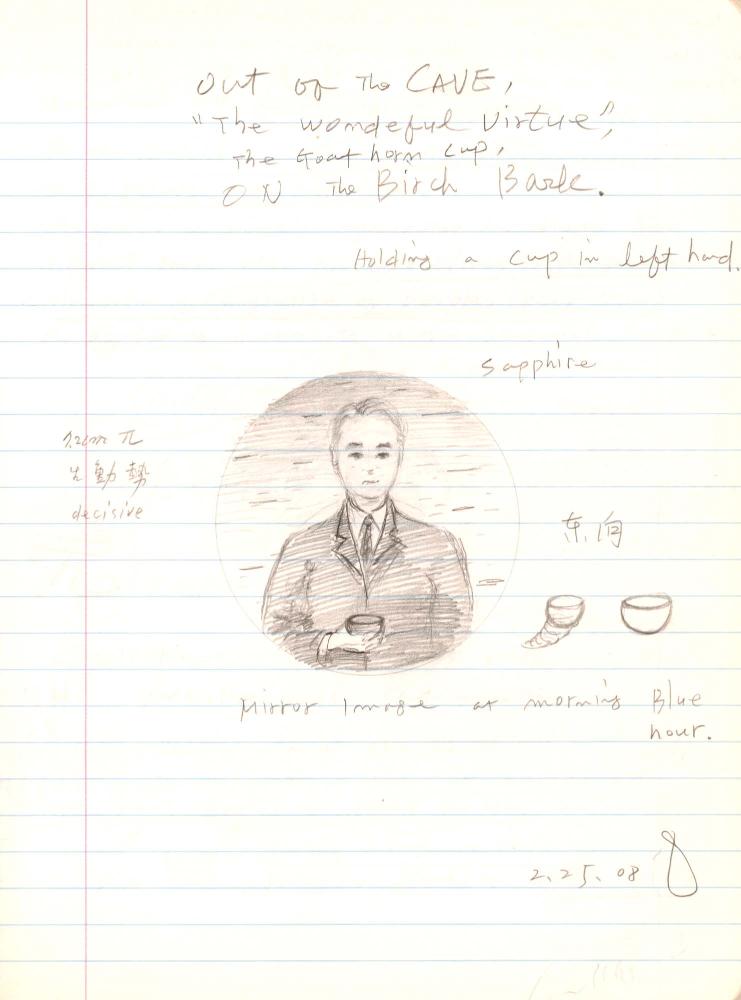 Out of The CAVE,
"The wondeful Virtue",
The Goat horn cup,
ON The Birch Bark.
Holding a cup in left hand.
Sapphire
7.2cm π
動勢
decisive
东,向
Mirror Image at morning Blue
hour.
2.25.08